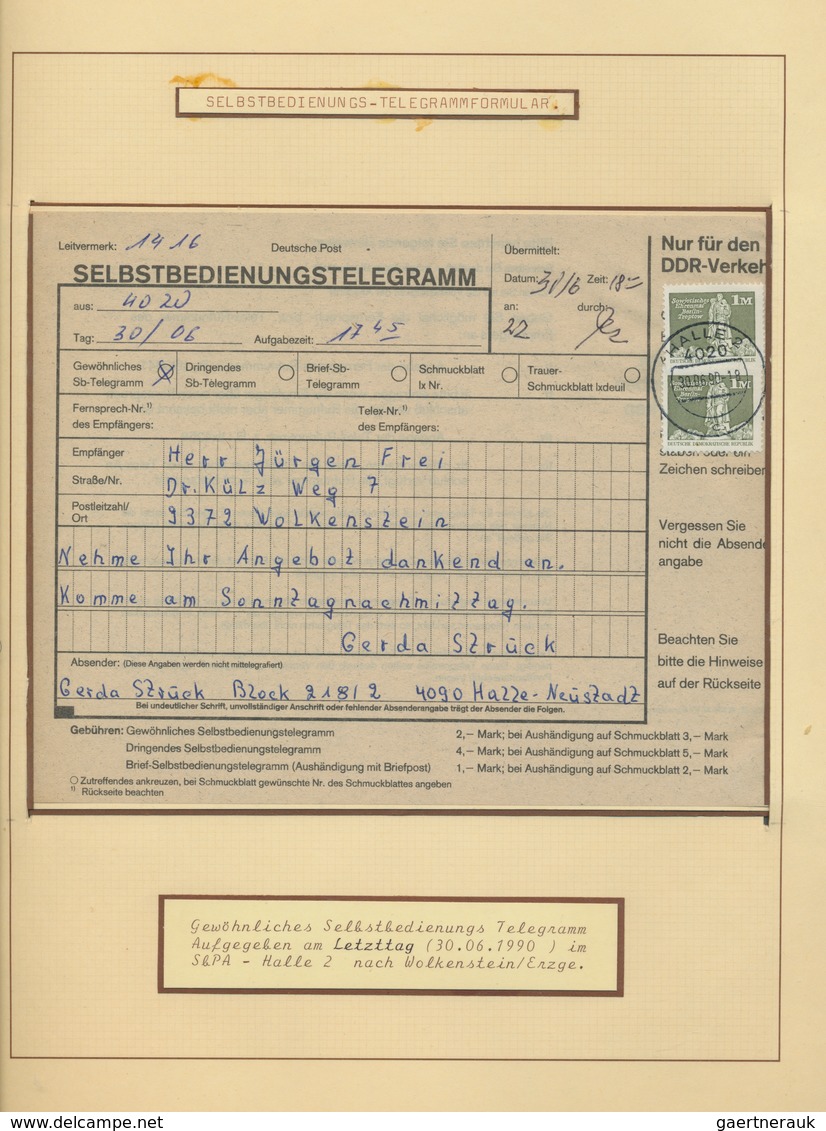 SELBSTBEDIENUNGS-TELEGRAMMFORMULAR.
Leitvermerk: 1416
Deutsche Post
SELBSTBEDIENUNGSTELEGRAMM
Übermittelt:
Datum: 30/6 Zeit: 18—
an: durch:
22
Nur für den
DDR-Verkeh
aus: 4020
Tag: 30/06 Aufgabezeit: 17 45
Gewöhnliches
Sb-Telegramm
Dringendes
Sb-Telegramm
Brief-Sb-
Telegramm
Schmuckblatt
lx Nr.
Trauer-
Schmuckblatt lxdeuil
Sowjetisches
Ehrenmal
Berlin-
Treptow
1M
DEUTSCHE DEMOKRATISCHE REPUBLIK
1M
DEUTSCHE DEMOKRATISCHE REPUBLIK
HALLE 2
4020
30.06.90-18
Fernsprech-Nr.1)
des Empfängers:
Telex-Nr.1)
des Empfängers:
Empfänger Herr Jürgen Frei
Straße/Nr. Dr. Külz Weg 7
Postleitzahl/
Ort 9372 Wolkenstein
Nehme Ihr Angebot dankend an.
Komme am Sonntagnachmittag.
Gerda Strück
Zeichen schreiben
Vergessen Sie
nicht die Absende
angabe
Beachten Sie
bitte die Hinweise
auf der Rückseite
Absender: (Diese Angaben werden nicht mittelegrafiert)
Gerda Strück Block 218/2 4090 Halle-Neustadt
Bei undeutlicher Schrift, unvollständiger Anschrift oder fehlender Absenderangabe trägt der Absender die Folgen.
Gebühren: Gewöhnliches Selbstbedienungstelegramm 2,– Mark; bei Aushändigung auf Schmuckblatt 3,– Mark
Dringendes Selbstbedienungstelegramm 4,– Mark; bei Aushändigung auf Schmuckblatt 5,– Mark
Brief-Selbstbedienungstelegramm (Aushändigung mit Briefpost) 1,– Mark; bei Aushändigung auf Schmuckblatt 2,– Mark
Zutreffendes ankreuzen, bei Schmuckblatt gewünschte Nr. des Schmuckblattes angeben
1) Rückseite beachten
Gewöhnliches Selbstbedienungs Telegramm
Aufgegeben am Letzttag (30.06.1990 ) im
SbPA - Halle 2 nach Wolkenstein/Erzge.
delcampe.net
gaertnerauk